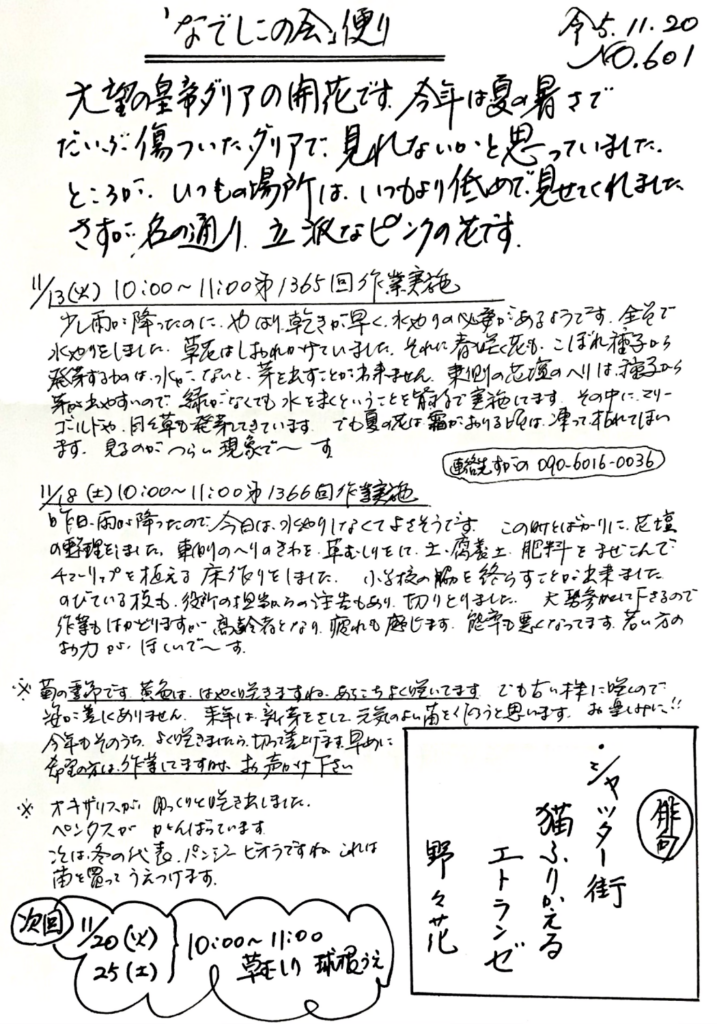 「なでしこの会」便り
令5.11.20
NO.601
大望の皇帝ダリアの開花です。今年は夏の暑さで
だいぶ傷ついたダリアで、見れないかと思っていました。
ところが、いつもの場所は、いつもより低めで見せてくれました
さすが名の通り、立派なピンクの花です。
11/13(火) 10:00〜11:00 第1365回作業実施
少し雨が降ったのに、やはり乾きが早く、水やりの必要があるようです。全員で
水やりをしました。草花はしおれかけていました。それに春咲く花も、こぼれ種子から
発芽するものは、水がこないと、芽を出すことが出来ません。東側の花壇のへりは、種子から
芽が出やすいので、緑がなくても水をまくということを で実施してます。その中に、マリー
ゴールドや、 草も発芽してきています。でも夏の花は霜がおりる頃は、凍って枯れてしまい
ます。見るのがつらい現象で〜す
連絡先すがの 090-6016-0036
11/18(土) 10:00〜11:00 第1366回作業実施
昨日、雨が降ったので、今日は、水やりしなくてよさそうです。この時とばかりに、花壇
の整理をしました。東側のへりのきわを、草むしりをして、土、腐葉土、肥料をまぜこんで
チューリップを植える床作りをしました。小学校の脇を終らすことが出来ました
のびている枝も、役所の担当からの注告もあり、切りとりました。大勢参加して下さるので
作業もはかどりますが、高齢者となり、疲れも感じます。能率も悪くなってます。若い方の
お力が、ほしいで〜す。
※ 菊の季節です。黄色は、はやく咲きますね。あちこちよく咲いてます。でも古い株に咲くので
姿が美しくありません。来年は、 芽をさして、元気のよい苗をつくろうと思います。お楽しみに!!
今年もそのうち、よく咲きましたら、切って差上げます。早めに
希望の方は、作業してますので、お声かけ下さい
※ オキザリスが、ゆっくりと咲き出しました。
ペンタスが、がんばっています
次は、冬の代表、パンジービオラですね。これは
苗を買ってうえつけます。
次回
11/20(火)
25(土)
10:00〜11:00
草むしり 球根うえ
俳句
・シャッター街
猫ふりかえる
エトランゼ
野々花